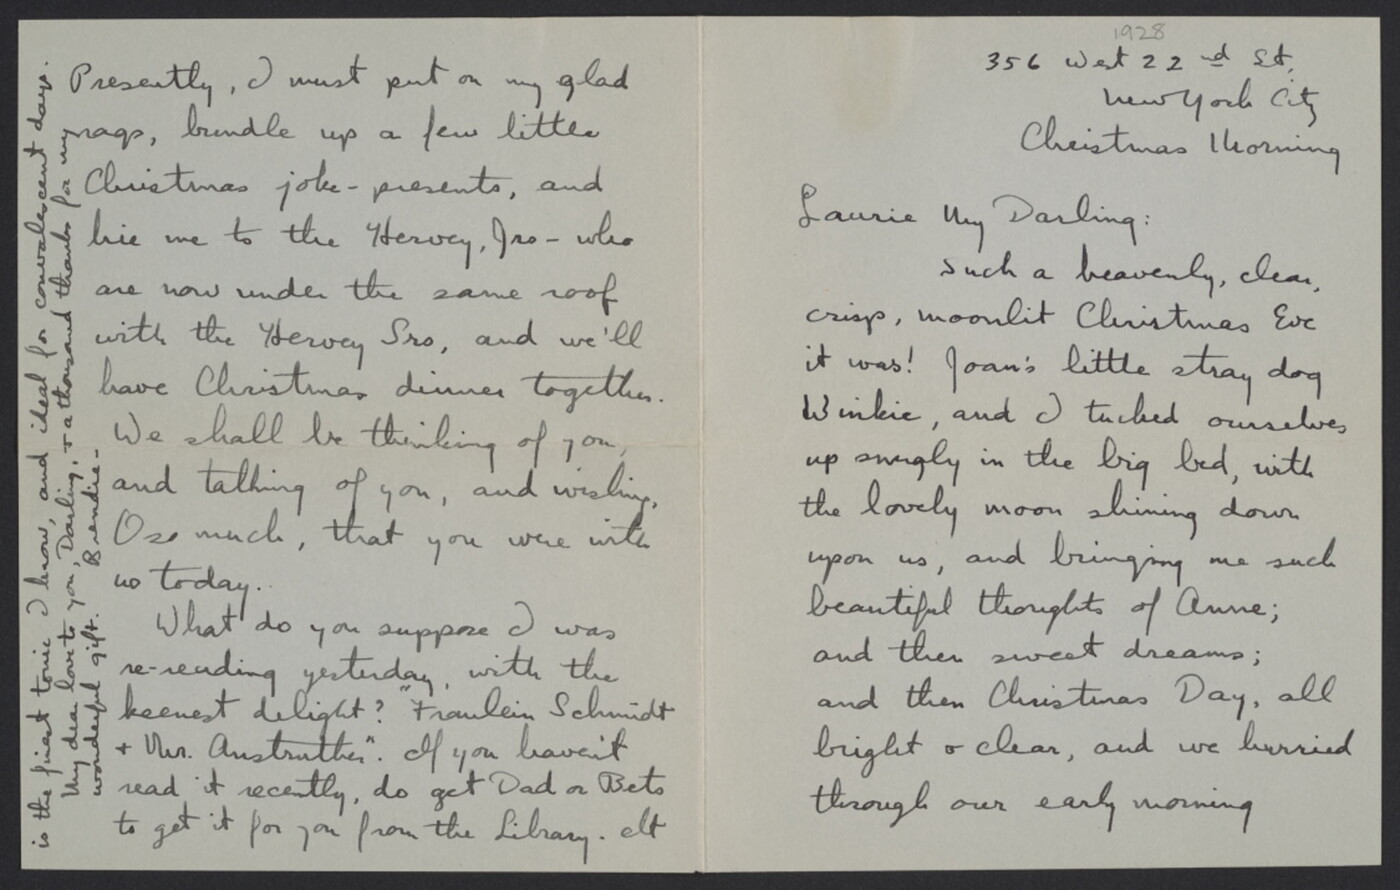 1928
356 West 22nd St,
New York City
Christmas Morning
Laurie My Darling:
Such a heavenly, clear,
crisp, moonlit Christmas Eve
it was! Joan's little stray dog
Winkie, and I tucked ourselves
up snugly in the big bed, with
the lovely moon shining down
upon us, and bringing me such
beautiful thoughts of Anne;
and then sweet dreams;
and then Christmas Day, all
bright & clear, and we hurried
through our early morning
Presently, I must put on my glad
rags, bundle up a few little
Christmas joke-presents, and
hie me to the Hervey, Jrs - who
are now under the same roof
with the Hervey Srs, and we'll
have Christmas dinner together.
We shall be thinking of you,
and talking of you, and wishing,
Oso much, that you were with
us today.
What do you suppose I was
re-reading yesterday, with the
keenest delight? "Fraulein Schmidt
+ Mr. Anstruther". If you haven't
read it recently, do get Dad or Bets
to get it for you from the Library. It
is the finest tonic I know, and ideal for convalescent days.
My dear love to you, Darling, & a thousand thanks for my
wonderful gift. Brendie-